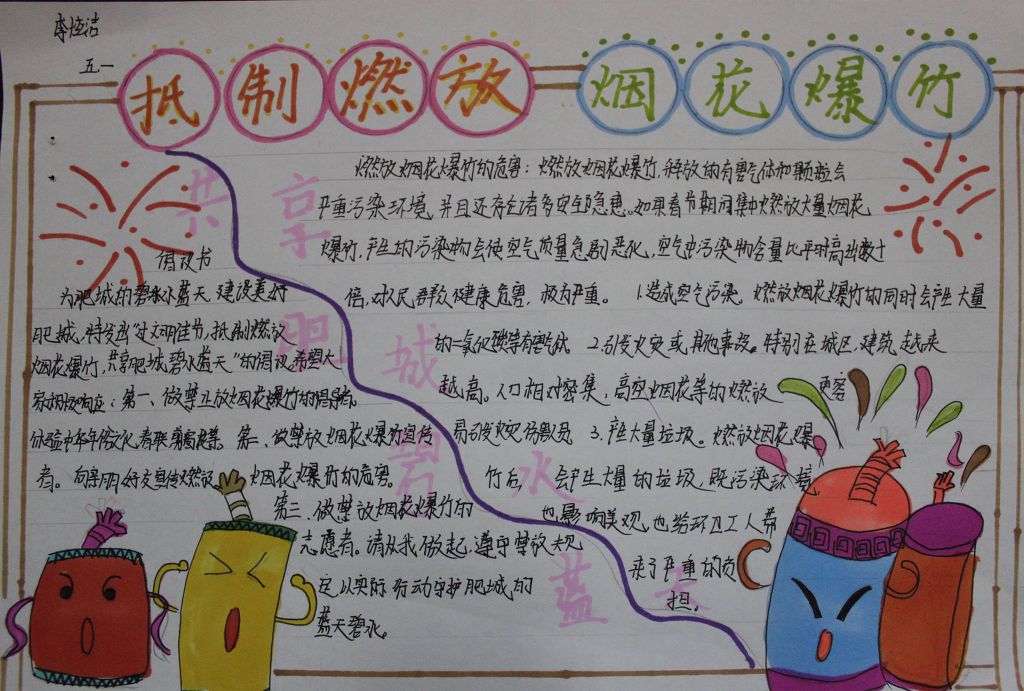 李恒洁
五一
抵制燃放 烟花爆竹
共享肥城碧水蓝天
倡议书
为肥城的碧水蓝天,建设美好
肥城,特发出“过文明佳节,抵制燃放
烟花爆竹,共享肥城碧水蓝天”的倡议,希望大
家积极响应:第一、做禁止放烟花爆竹的倡导者。
体验中华年俗文化,春联剪窗花等。第二、做禁放烟花爆竹宣传
者。向亲朋好友宣传燃放烟花爆竹的危害。
第三、做禁放烟花爆竹的
志愿者。请从我做起,遵守禁放规
定以实际行动守护肥城的
蓝天碧水。
燃放烟花爆竹的危害:燃放烟花爆竹,释放的有害气体和颗粒会
严重污染环境,并且还存在着多安全隐患。如果春节期间集中燃放大量烟花
爆竹,产生的污染物会使空气质量急剧恶化,空气中污染物含量比平时高出数十
倍,对人民群众健康危害,极为严重。 1.造成空气污染。燃放烟花爆竹的同时会产生大量
的二氧化硫等有害气体 2.引发火灾或其他事故。特别在城区,建筑越来
越高。人口相对密集,高空烟花等的燃放更容
易引发火灾伤员 3.产生大量垃圾。燃放烟花爆
竹后会产生大量的垃圾,既污染环境,
也影响美观,也给环卫工人带
来了严重的负
担。